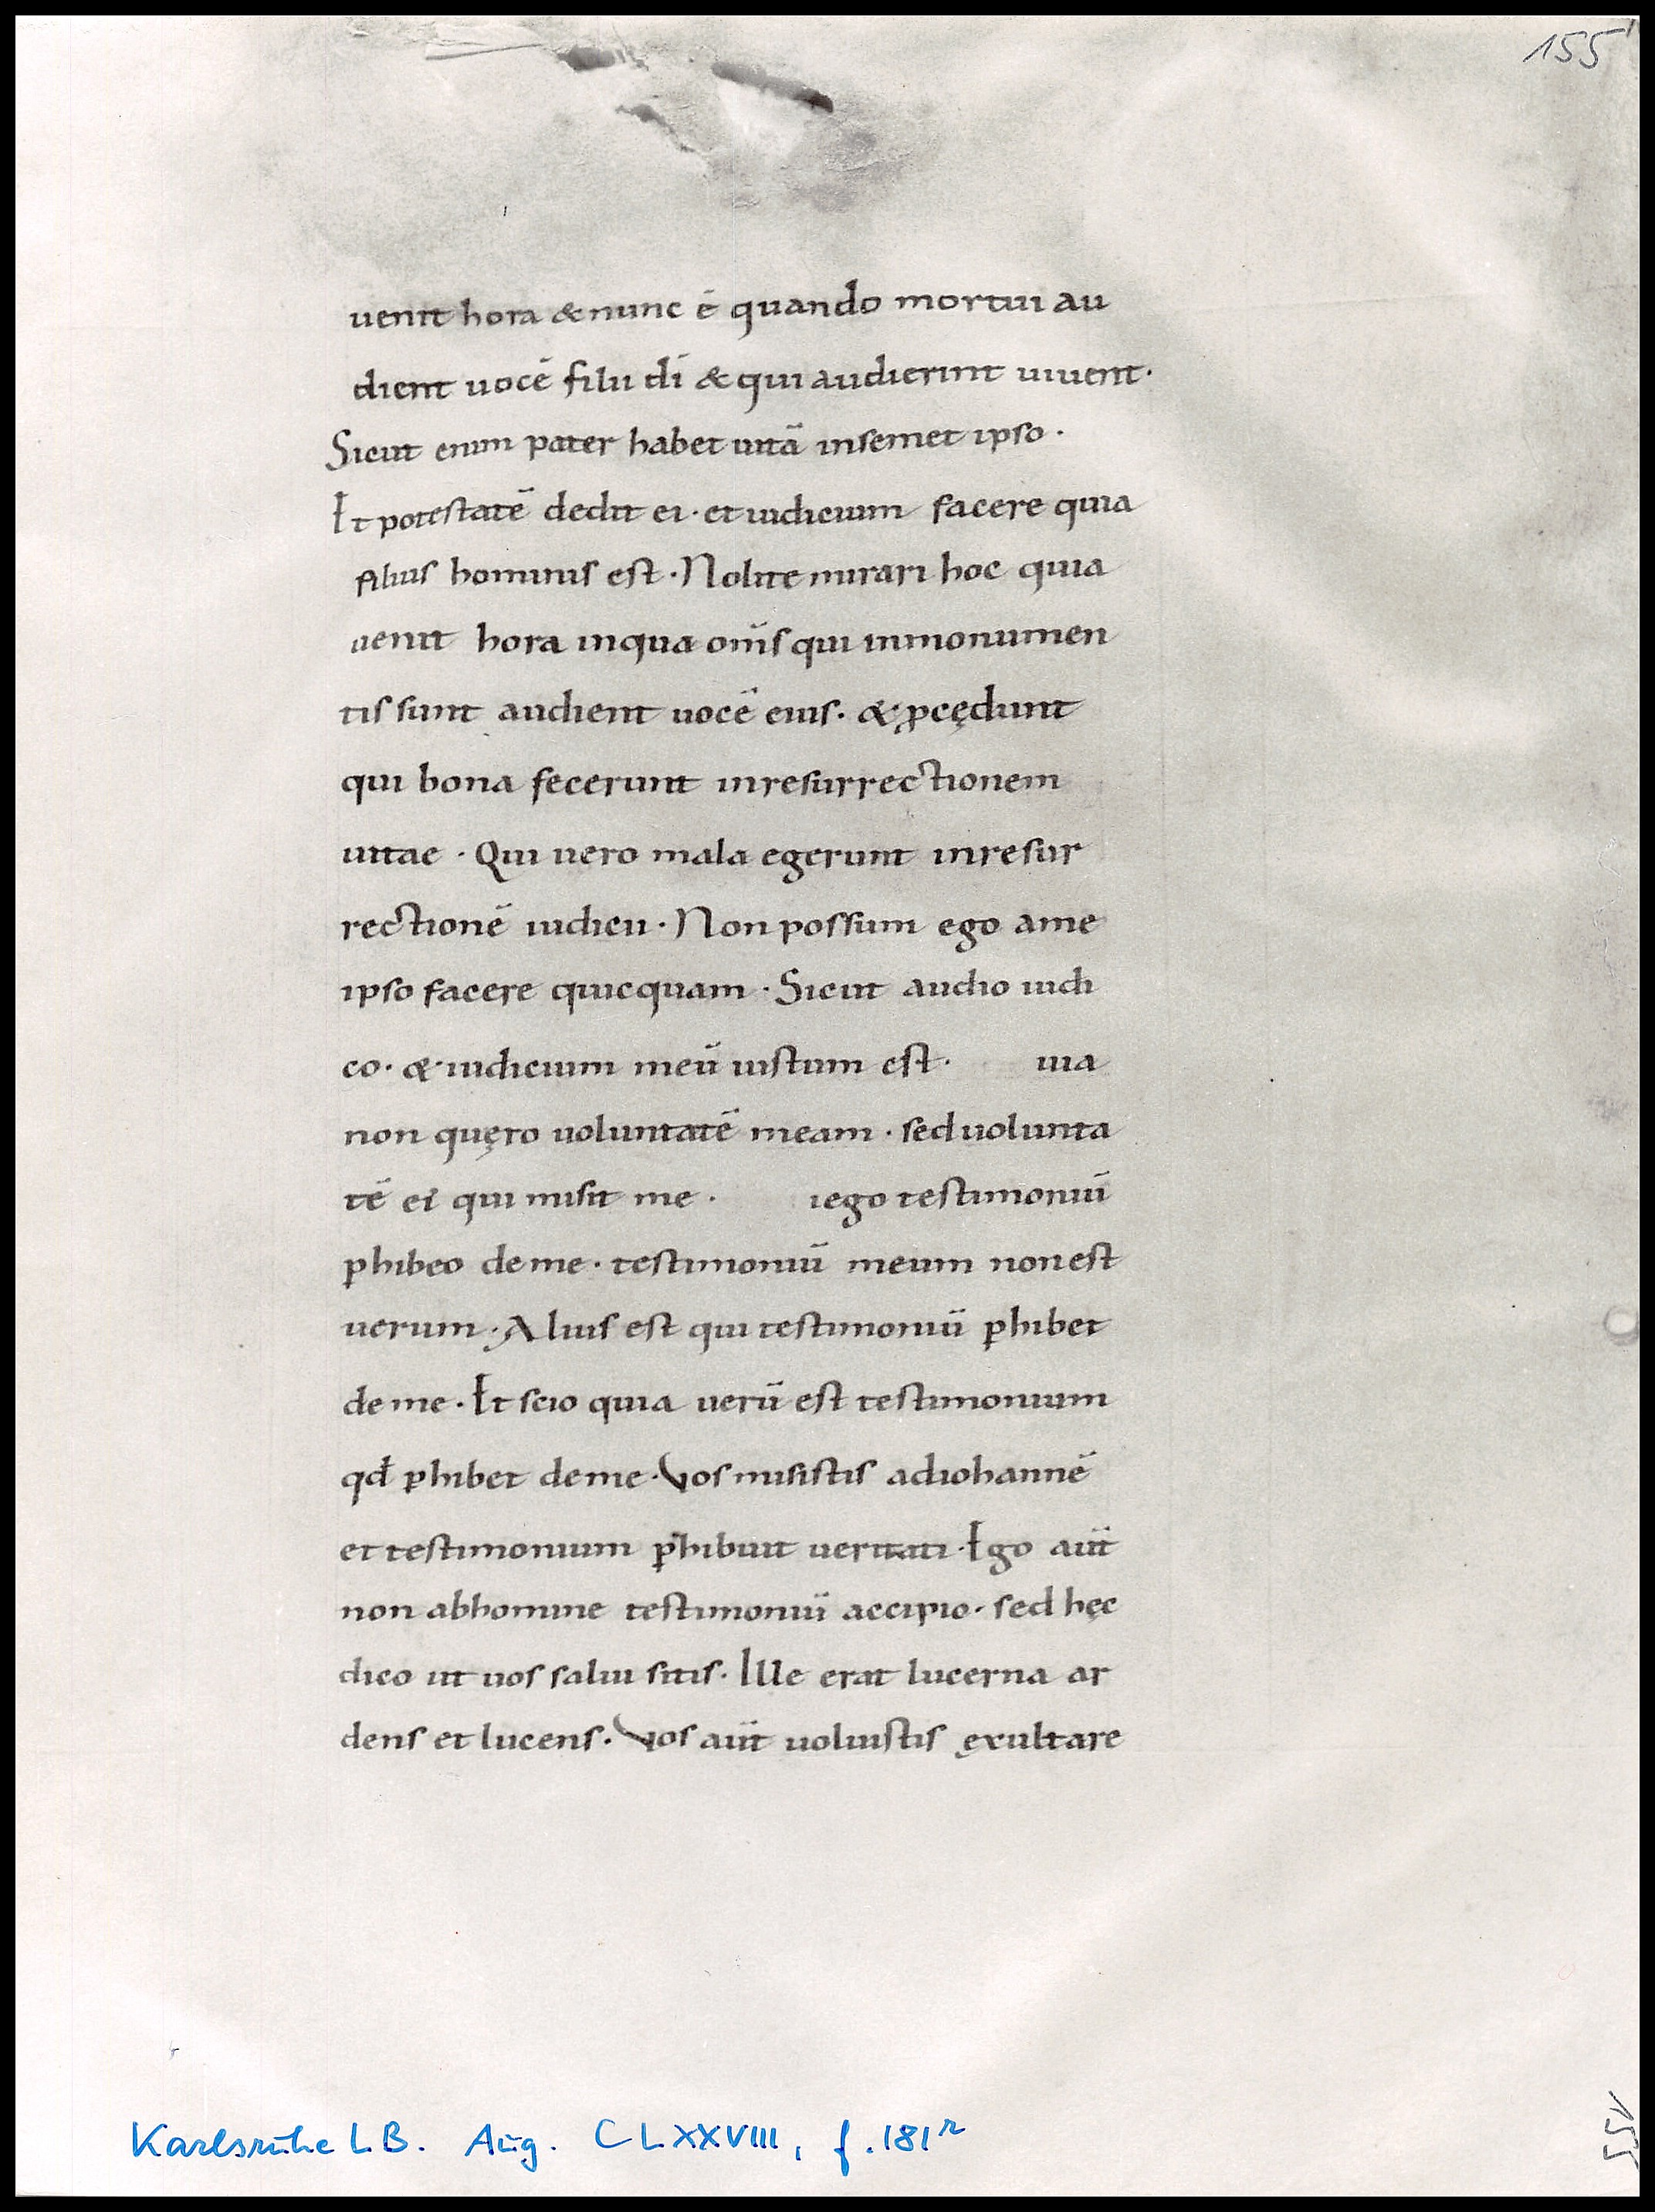 155
uenit hora & nunc ē quando mortui au
dient uocē filii dī & qui audierint uiuent·
Sicut enim pater habet uitā insemet ipso·
Et potestatē dedit ei· et iudicium facere quia
filius hominis est· Nolite mirari hoc quia
uenit hora inqua om̄s qui inmonumen
tis sunt audient uocē eius· & ꝓcędunt
qui bona fecerunt inresurrectionem
uitae· Qui uero mala egerunt inresur
rectionē iudicii· Non possum ego ame
ipso facere quicquam· Sicut audio iudi
co· & iudicium meū iustum est· uia
non quęro uoluntatē meam· sed uolunta
tē ei qui misit me· iego testimoniū
ꝑhibeo deme· testimoniū meum non est
uerum· Alius est qui testimoniū ꝑhibet
deme· Et scio quia uerū est testimonium
qđ ꝑhibet deme· Vos misistis adiohannē
et testimonium ꝑhibuit ueritati· Ego aūt
non abhomine testimoniū accipio· sed hęc
dico ut uos salui sitis· Ille erat lucerna ar
dens et lucens· Vos aūt uoluistis ęxultare
Karlsruhe LB. Aug. CLXXVIII, f. 181r
155